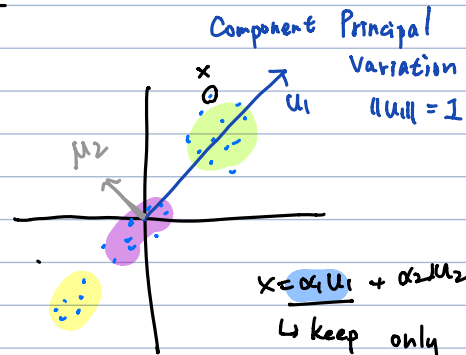 Component Principal
Variation
||u₁|| = 1
x
u₁
μ₂
x = α₁u₁ + α₂μ₂
↳ keep only